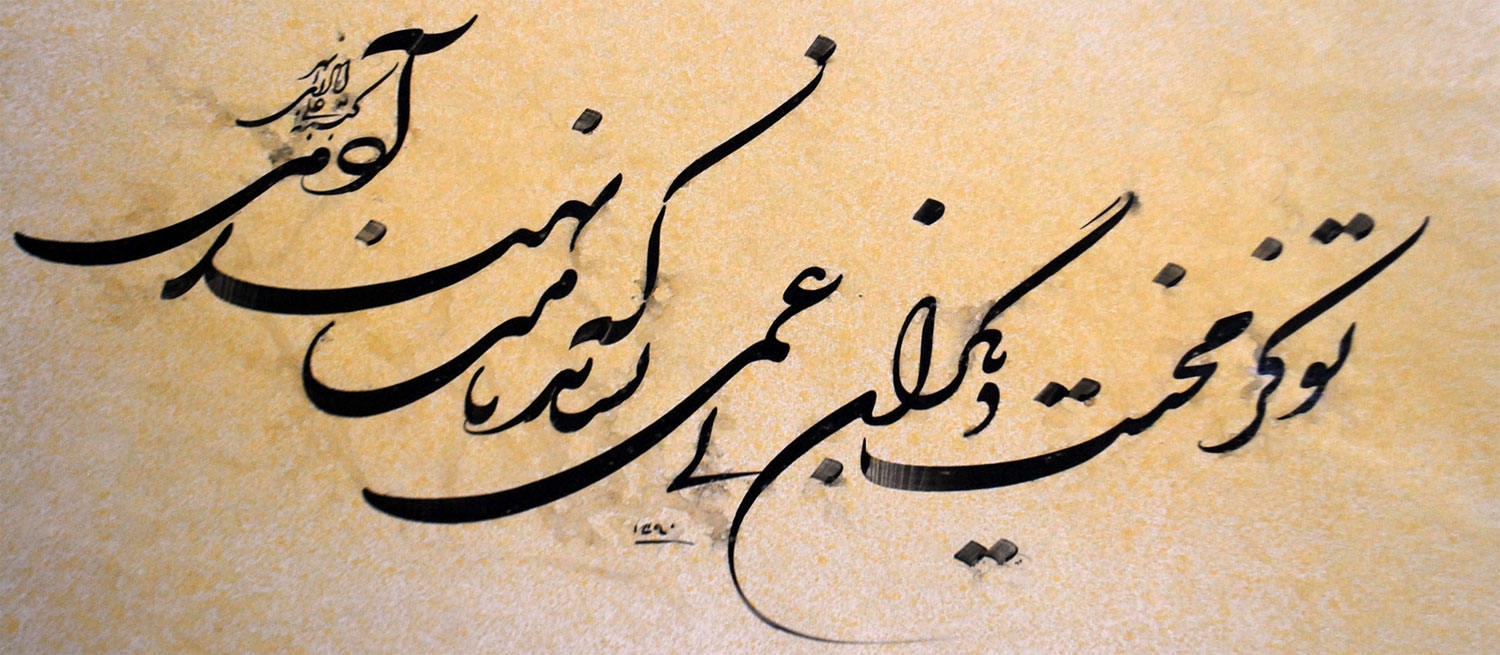 تو کز محنت دیگران بی غمی
نشاید که نامت نهند آدمی
کتبه علی
۱۳۹۰